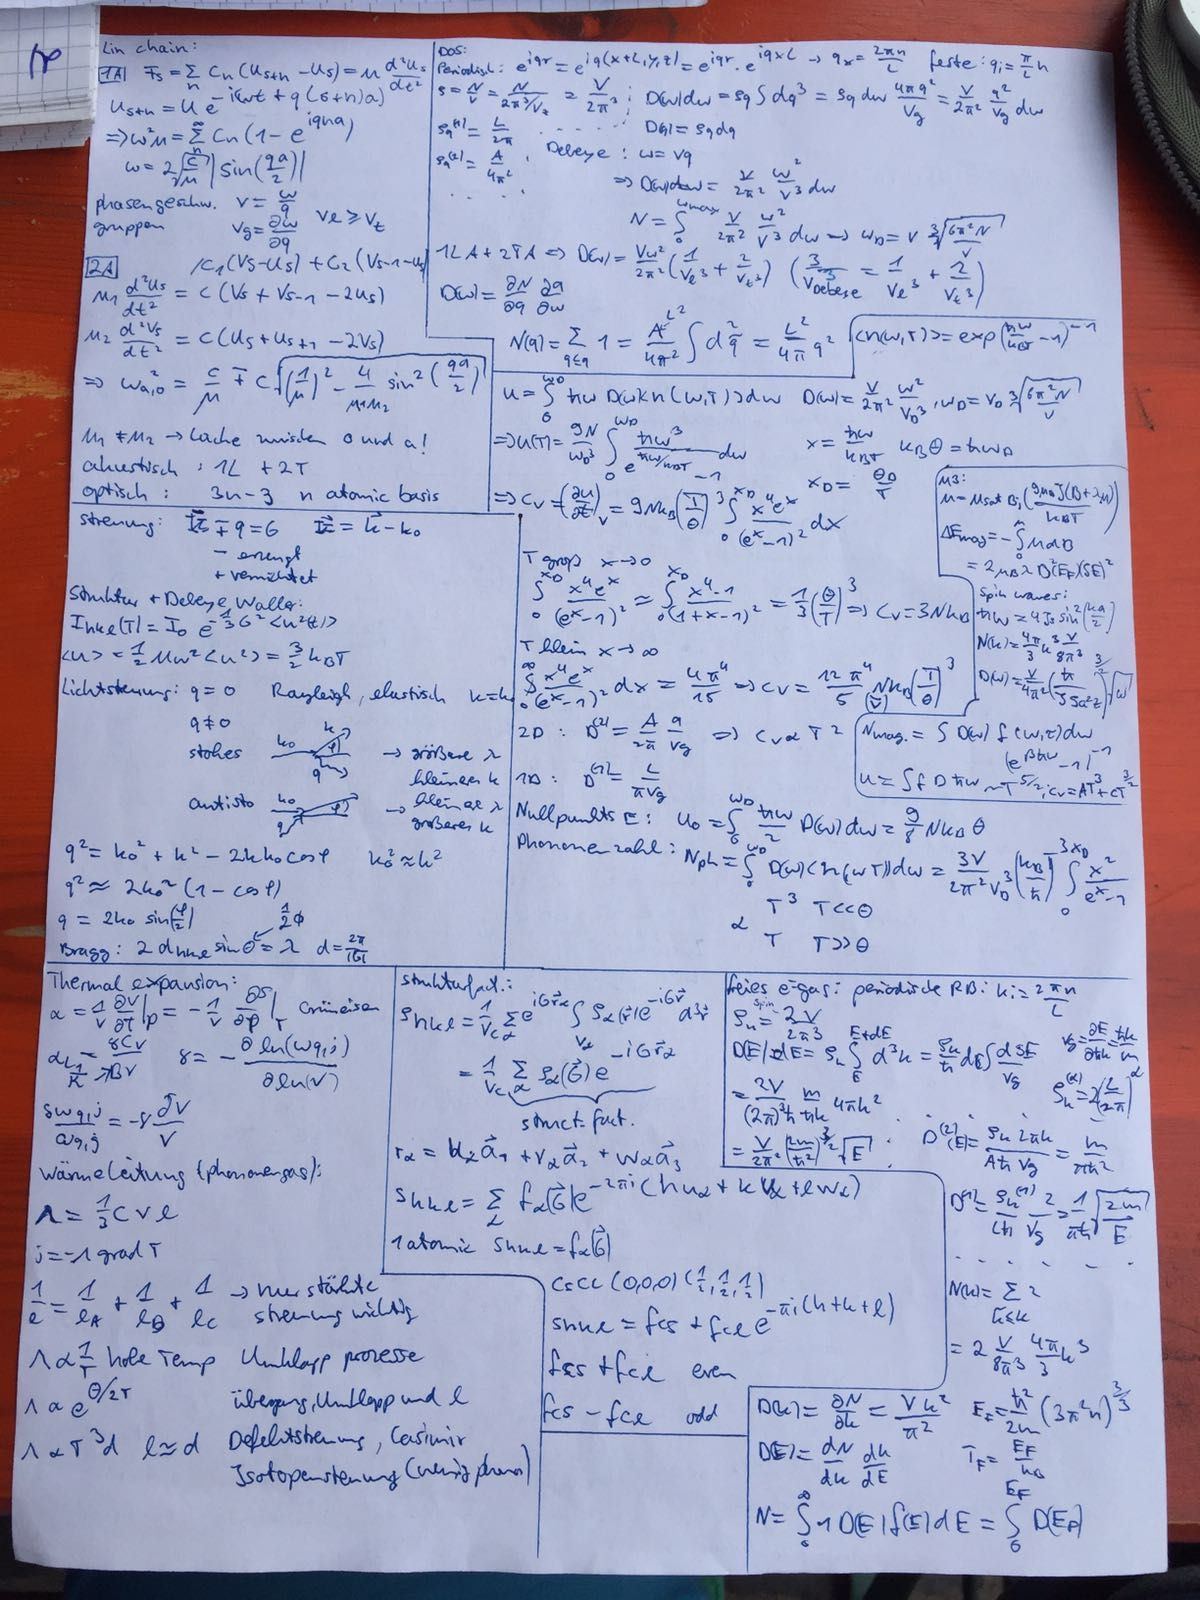 Lin chain:
1A Fs = Σ_n Cn (u_{s+n} − u_s) = μ d²u_s/dt²
u_{s+n} = u e^{−i(ωt + q(s+n)a)}
⇒ ω²μ = Σ_n^∞ Cn (1 − e^{iqna})
ω = 2√(C/μ) |sin(qa/2)|
phasengeschw. v = ω/q
gruppen v_g = ∂ω/∂q v_l ≥ v_t
2A /C1(Vs − us) + C2(Vs−1 − us)
μ1 d²us/dt² = C(Vs + Vs−1 − 2us)
μ2 d²vs/dt² = C(us + us+1 − 2Vs)
⇒ ω²a,o = C/μ ∓ C √((1/μ)² − 4/(μ1μ2) sin²(qa/2))
μ1 ≠ μ2 → Lücke zwischen o und a!
akustisch: 1L + 2T
optisch: 3n − 3 n atomic basis
DOS:
Periodisch: e^{iqr} = e^{iq(x+L,y,z)} = e^{iqr} · e^{iqxL} → q_x = 2πn/L feste: q_i = π/L n
D(ω)dω = ρq ∫dq³ = ρq dω 4πq²/Vg = V/2π² q²/Vg dω
ρq^(1) = L/2π ..... D(q) = ρq dq
ρq^(2) = A/4π² . Debeye: ω = vq
.....
⇒ D(ω)dω = V/2π² ω²/v³ dω
N = ∫_0^{ωmax} V/2π² ω²/v³ dω ⇒ ω_D = v ∛(6π²N/V)
1LA + 2TA ⇒ D(ω) = Vω²/2π² (1/v_l³ + 2/v_t³) (3/v³_Debeye = 1/v_l³ + 2/v_t³)
D(ω) = ∂N/∂q ∂q/∂ω
N(q) = Σ_{q≤q} 1 = A/4π² L² ∫d²q = L²/4π q²
<n(ω,T)> = exp(ħω/k_BT − 1)^{−1}
u = ∫_0^{ωD} ħω D(ω)<n(ω,T)>dω D(ω) = V/2π² ω²/v_D³, ω_D = v_D ∛(6π²N/V)
⇒ u(T) = 9N/ω_D³ ∫_0^{ωD} ħω³/(e^{ħω/k_BT} − 1) dω x = ħω/k_BT k_BΘ = ħω_D
x_D = Θ_D/T
⇒ C_V = (∂u/∂t)_V = 9Nk_B (T/Θ)³ ∫_0^{x_D} x⁴e^x/(e^x − 1)² dx
T groß x → 0
∫_0^{x_D} x⁴e^x/(e^x − 1)² ≈ ∫_0^{x_D} x⁴·1/(1+x−1)² = 1/3 (Θ/T)³ ⇒ C_V = 3Nk_B
T klein x → ∞
∫_0^∞ x⁴e^x/(e^x − 1)² dx = 4π⁴/15 ⇒ C_V = 12π⁴/5 Nk_B (T/Θ)³
(V)
2D: D^(2) = A/2π q/Vg ⇒ C_V ∝ T²
1D: D^(1) = L/πVg
Nullpunkts E: u0 = ∫_0^{ωD} ħω/2 D(ω)dω = 9/8 Nk_BΘ
Phononenzahl: Nph = ∫_0^{ωD} D(ω)<n(ω,T)>dω = 3V/2π²v_D³ (k_BT/ħ)³ ∫_0^{x_D} x²/(e^x − 1)
∝ T³ T<<Θ
T T>>Θ
M3:
ΔEmag = −∫_0^M MdB
= 2μ_Bλ D²(E_F)(δE)²
spin waves:
ħω = 4JS sin²(ka/2)
N(k) = 4π/3 k³ V/8π³
Nmag. = ∫ D(ω) f(ω,T)dω
(e^{βħω} − 1)^{−1}
u = ∫f D ħω ~ T^{5/2}; C_V = AT³ + CT^{3/2}
streuung: K ∓ q = G K = k − k0
− erzeugt
+ vernichtet
Struktur + Debeye Waller:
I_hkl(T) = I0 e^{−1/3 G² <u²(t)>}
<u> = 1/2 Mω²<u²> = 3/2 k_BT
Lichtstreuung: q = 0 Rayleigh, elastisch k = k0
q ≠ 0
stokes k0 k φ q → größere λ
kleineres k
antisto k0 φ q → kleinere λ
größeres k
q² = k0² + k² − 2kk0 cosφ k0² ≈ k²
q² ≈ 2k0² (1 − cosφ)
q = 2k0 sin(φ/2) 1/2 Φ
Bragg: 2 d_hkl sinΘ = λ d = 2π/|G|
Thermal expansion:
α = 1/V ∂V/∂T|p = −1/V ∂S/∂p|T Grüneisen
α_L = γC_V/BV γ = − ∂ln(ωq,j)/∂ln(V)
1/K
δωq,j/ωq,j = −γ δV/V
Wärmeleitung (phononengas):
Λ = 1/3 C v l
j = −λ grad T
1/l = 1/lA + 1/lB + 1/lC → nur stärkste
streuung wichtig
Λ ∝ 1/T hohe Temp Umklapp prozesse
Λ ∝ e^{Θ/2T} übergang, Umklapp und l
Λ ∝ T³d l ≈ d Defektstreuung, Casimir
Isotopenstreuung (wenig phonos)
strukturfact.:
ρ_hkl = 1/Vc Σ_α e^{−iGrα} ∫_{Vα} ρα(r)e^{−iGr} d³r
= 1/Vc Σ_α ρα(G) e^{−iGrα}
struct. fact.
rα = uα a1 + vα a2 + wα a3
S_hkl = Σ_α fα(G) e^{−2πi(huα + kvα + lwα)}
1 atomic S_hkl = fα(G)
CsCl (0,0,0) (1/2, 1/2, 1/2)
S_hkl = fcs + fcl e^{−πi(h+k+l)}
fcs + fcl even
fcs − fcl odd
freies e-gas: periodische RB: ki = 2πn/L
spin
ρk = 2V/2π³
D(E)dE = ρk ∫_E^{E+dE} d³k = ρk/ħ dE ∫ dSE/Vg Vg = ∂E/∂ħk = ħk/m
= 2V/(2π)³ħ m/ħk 4πk² ρk^(α) = 2(L/2π)^α
= V/2π² (2m/ħ²)^{3/2} √E; D^(2)(E) = ρk 2πk/Aħ Vg = m/πħ²
D^(1) = ρk^(1)/Lħ 2/Vg = 1/πħ √(2m/E)
.....
N(k) = Σ_{k≤k} 2
= 2 V/8π³ 4π/3 k³
D(k) = ∂N/∂k = Vk²/π² E_F = ħ²/2m (3π²n)^{2/3}
D(E) = dN/dk dk/dE T_F = E_F/k_B
N = ∫_0^∞ 1 D(E) f(E) dE = ∫_0^{E_F} D(E_F)